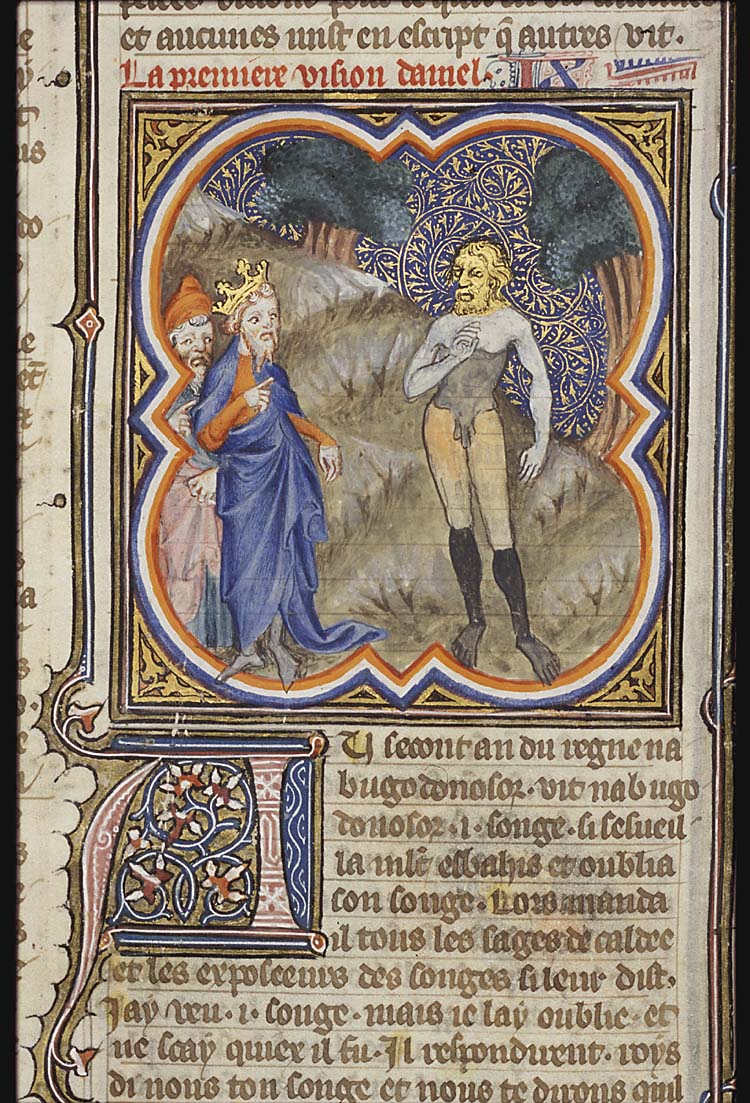 et aucunes mist en escript q̃ autres vit.
La premiere vision daniel. IX
Au second an du regne na
bugodonosor. vit nabugo
donosor .i. songe. si sesueil
la mlt̃ esbahis et oublia
son songe. Lors manda
il tous les sages de caldee
et les exposeeurs des songes si leur dist.
Jay veu .i. songe. mais ie lay oublie. et
ne scay quiex il fu. Il respondirent. roys
di nous ton songe et nous te dirons quil